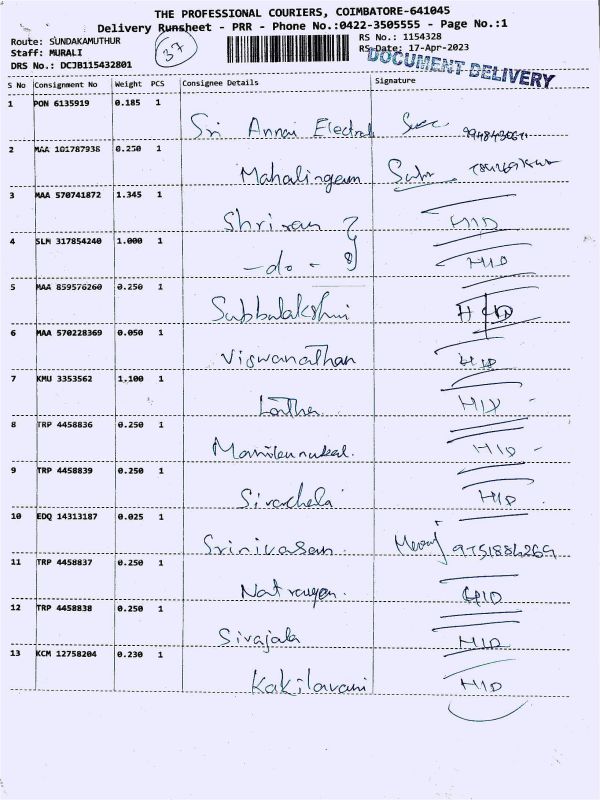 THE PROFESSIONAL COURIERS, COIMBATORE-641045
Delivery Runsheet - PRR - Phone No.:0422-3505555 - Page No.:1
Route: SUNDAKAMUTHUR
37
RS No.: 1154328
Staff: MURALI
RS Date: 17-Apr-2023
DRS No.: DCJB115432801
DOCUMENT DELIVERY
S No Consignment No Weight PCS Consignee Details Signature
1 PON 6135919 0.185 1
Sri Annai Electral
2 MAA 101787938 0.250 1
Mahalingam
3 MAA 570741872 1.345 1
Shriram HID
4 SLM 317854240 1.000 1
-do- HID
5 MAA 859576260 0.250 1
Subbulakshmi HID
6 MAA 570228369 0.050 1
Viswanathan HID
7 KMU 3353562 1.100 1
Latha HID
8 TRP 4458836 0.250 1
HID
9 TRP 4458839 0.250 1
HID
10 EDQ 14313187 0.025 1
Srinivasan
11 TRP 4458837 0.250 1
HID
12 TRP 4458838 0.250 1
Sivajala HID
13 KCM 12758204 0.230 1
Kakilavani HID